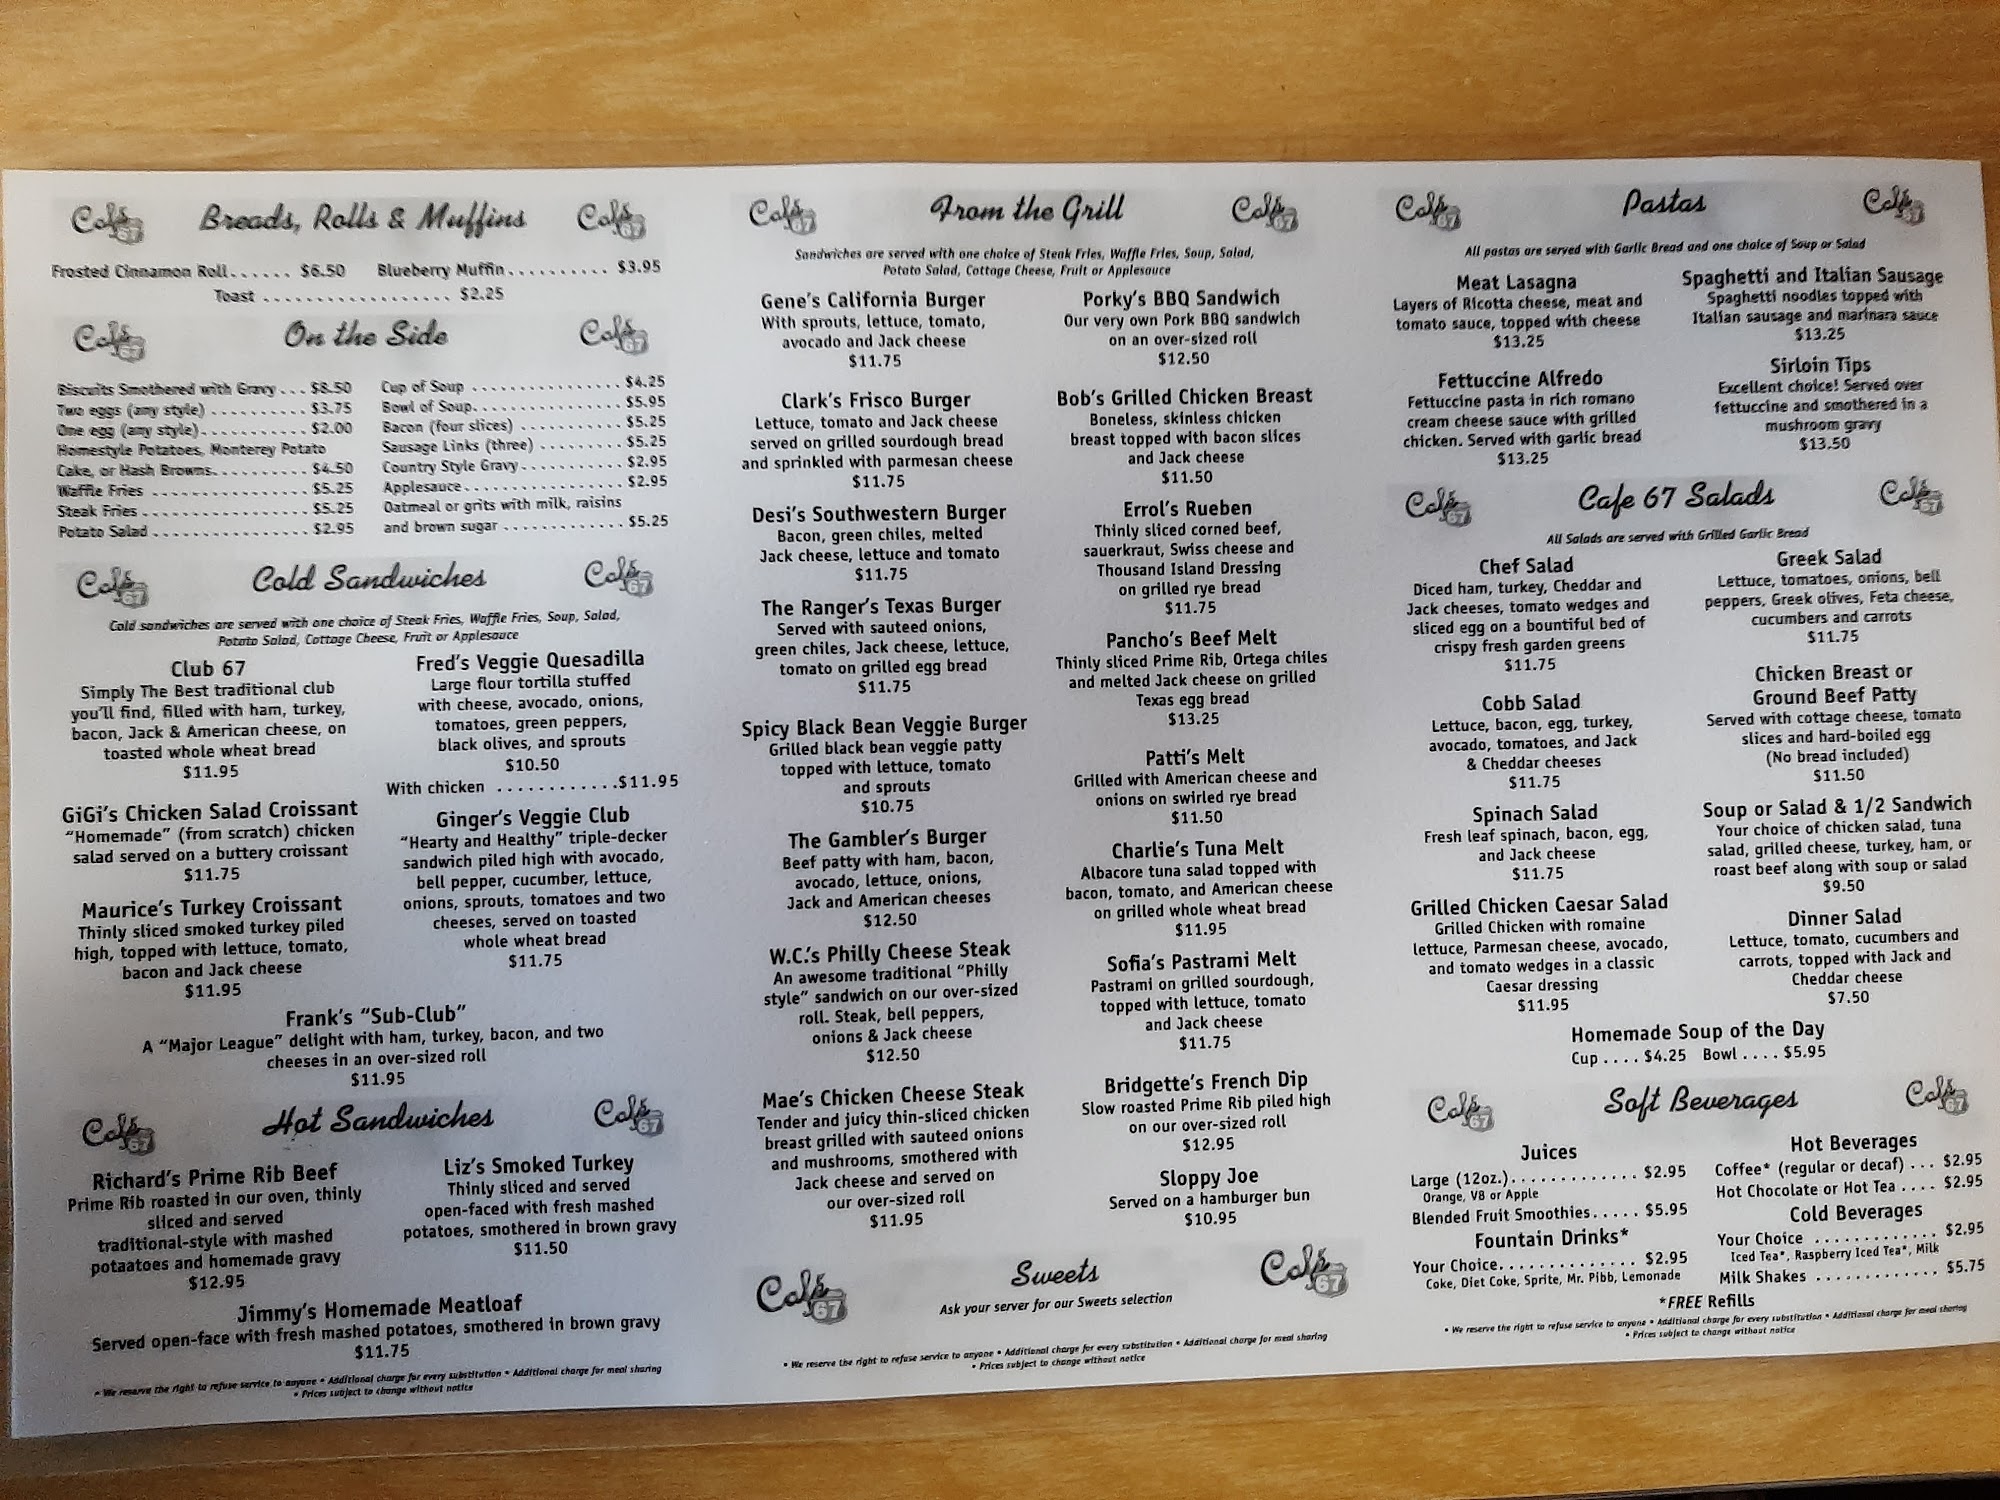 Café 67
Breads, Rolls & Muffins
Café 67
Frosted Cinnamon Roll...... $6.50
Blueberry Muffin.......... $3.95
Toast .................. $2.25
Café 67
On the Side
Café 67
Biscuits Smothered with Gravy... $8.50
Two eggs (any style) .......... $3.75
One egg (any style)........... $2.00
Homestyle Potatoes, Monterey Potato
Cake, or Hash Browns.......... $4.50
Waffle Fries ................ $5.25
Steak Fries ................. $5.25
Potato Salad ................ $2.95
Cup of Soup ................ $4.25
Bowl of Soup................ $5.95
Bacon (four slices) ........... $5.25
Sausage Links (three) ......... $5.25
Country Style Gravy........... $2.95
Applesauce................. $2.95
Oatmeal or grits with milk, raisins
and brown sugar ............. $5.25
Café 67
Cold Sandwiches
Café 67
Cold sandwiches are served with one choice of Steak Fries, Waffle Fries, Soup, Salad,
Potato Salad, Cottage Cheese, Fruit or Applesauce
Club 67
Simply The Best traditional club
you'll find, filled with ham, turkey,
bacon, Jack & American cheese, on
toasted whole wheat bread
$11.95
GiGi's Chicken Salad Croissant
"Homemade" (from scratch) chicken
salad served on a buttery croissant
$11.75
Maurice's Turkey Croissant
Thinly sliced smoked turkey piled
high, topped with lettuce, tomato,
bacon and Jack cheese
$11.95
Fred's Veggie Quesadilla
Large flour tortilla stuffed
with cheese, avocado, onions,
tomatoes, green peppers,
black olives, and sprouts
$10.50
With chicken ............$11.95
Ginger's Veggie Club
"Hearty and Healthy" triple-decker
sandwich piled high with avocado,
bell pepper, cucumber, lettuce,
onions, sprouts, tomatoes and two
cheeses, served on toasted
whole wheat bread
$11.75
Frank's "Sub-Club"
A "Major League" delight with ham, turkey, bacon, and two
cheeses in an over-sized roll
$11.95
Café 67
Hot Sandwiches
Café 67
Richard's Prime Rib Beef
Prime Rib roasted in our oven, thinly
sliced and served
traditional-style with mashed
potaatoes and homemade gravy
$12.95
Liz's Smoked Turkey
Thinly sliced and served
open-faced with fresh mashed
potatoes, smothered in brown gravy
$11.50
Jimmy's Homemade Meatloaf
Served open-face with fresh mashed potatoes, smothered in brown gravy
$11.75
• We reserve the right to refuse service to anyone • Additional charge for every substitution • Additional charge for meal sharing
• Prices subject to change without notice
Café 67
From the Grill
Café 67
Sandwiches are served with one choice of Steak Fries, Waffle Fries, Soup, Salad,
Potato Salad, Cottage Cheese, Fruit or Applesauce
Gene's California Burger
With sprouts, lettuce, tomato,
avocado and Jack cheese
$11.75
Clark's Frisco Burger
Lettuce, tomato and Jack cheese
served on grilled sourdough bread
and sprinkled with parmesan cheese
$11.75
Desi's Southwestern Burger
Bacon, green chiles, melted
Jack cheese, lettuce and tomato
$11.75
The Ranger's Texas Burger
Served with sauteed onions,
green chiles, Jack cheese, lettuce,
tomato on grilled egg bread
$11.75
Spicy Black Bean Veggie Burger
Grilled black bean veggie patty
topped with lettuce, tomato
and sprouts
$10.75
The Gambler's Burger
Beef patty with ham, bacon,
avocado, lettuce, onions,
Jack and American cheeses
$12.50
W.C.'s Philly Cheese Steak
An awesome traditional "Philly
style" sandwich on our over-sized
roll. Steak, bell peppers,
onions & Jack cheese
$12.50
Mae's Chicken Cheese Steak
Tender and juicy thin-sliced chicken
breast grilled with sauteed onions
and mushrooms, smothered with
Jack cheese and served on
our over-sized roll
$11.95
Porky's BBQ Sandwich
Our very own Pork BBQ sandwich
on an over-sized roll
$12.50
Bob's Grilled Chicken Breast
Boneless, skinless chicken
breast topped with bacon slices
and Jack cheese
$11.50
Errol's Rueben
Thinly sliced corned beef,
sauerkraut, Swiss cheese and
Thousand Island Dressing
on grilled rye bread
$11.75
Pancho's Beef Melt
Thinly sliced Prime Rib, Ortega chiles
and melted Jack cheese on grilled
Texas egg bread
$13.25
Patti's Melt
Grilled with American cheese and
onions on swirled rye bread
$11.50
Charlie's Tuna Melt
Albacore tuna salad topped with
bacon, tomato, and American cheese
on grilled whole wheat bread
$11.95
Sofia's Pastrami Melt
Pastrami on grilled sourdough,
topped with lettuce, tomato
and Jack cheese
$11.75
Bridgette's French Dip
Slow roasted Prime Rib piled high
on our over-sized roll
$12.95
Sloppy Joe
Served on a hamburger bun
$10.95
Café 67
Sweets
Café 67
Ask your server for our Sweets selection
• We reserve the right to refuse service to anyone • Additional charge for every substitution • Additional charge for meal sharing
• Prices subject to change without notice
Café 67
Pastas
Café 67
All pastas are served with Garlic Bread and one choice of Soup or Salad
Meat Lasagna
Layers of Ricotta cheese, meat and
tomato sauce, topped with cheese
$13.25
Fettuccine Alfredo
Fettuccine pasta in rich romano
cream cheese sauce with grilled
chicken. Served with garlic bread
$13.25
Spaghetti and Italian Sausage
Spaghetti noodles topped with
Italian sausage and marinara sauce
$13.25
Sirloin Tips
Excellent choice! Served over
fettuccine and smothered in a
mushroom gravy
$13.50
Café 67
Cafe 67 Salads
Café 67
All Salads are served with Grilled Garlic Bread
Chef Salad
Diced ham, turkey, Cheddar and
Jack cheeses, tomato wedges and
sliced egg on a bountiful bed of
crispy fresh garden greens
$11.75
Cobb Salad
Lettuce, bacon, egg, turkey,
avocado, tomatoes, and Jack
& Cheddar cheeses
$11.75
Spinach Salad
Fresh leaf spinach, bacon, egg,
and Jack cheese
$11.75
Grilled Chicken Caesar Salad
Grilled Chicken with romaine
lettuce, Parmesan cheese, avocado,
and tomato wedges in a classic
Caesar dressing
$11.95
Greek Salad
Lettuce, tomatoes, onions, bell
peppers, Greek olives, Feta cheese,
cucumbers and carrots
$11.75
Chicken Breast or
Ground Beef Patty
Served with cottage cheese, tomato
slices and hard-boiled egg
(No bread included)
$11.50
Soup or Salad & 1/2 Sandwich
Your choice of chicken salad, tuna
salad, grilled cheese, turkey, ham, or
roast beef along with soup or salad
$9.50
Dinner Salad
Lettuce, tomato, cucumbers and
carrots, topped with Jack and
Cheddar cheese
$7.50
Homemade Soup of the Day
Cup .... $4.25 Bowl .... $5.95
Café 67
Soft Beverages
Café 67
Juices
Large (12oz.)............. $2.95
Orange, V8 or Apple
Blended Fruit Smoothies..... $5.95
Fountain Drinks*
Your Choice.............. $2.95
Coke, Diet Coke, Sprite, Mr. Pibb, Lemonade
Hot Beverages
Coffee* (regular or decaf) ... $2.95
Hot Chocolate or Hot Tea .... $2.95
Cold Beverages
Your Choice ............. $2.95
Iced Tea*, Raspberry Iced Tea*, Milk
Milk Shakes ............. $5.75
*FREE Refills
• We reserve the right to refuse service to anyone • Additional charge for every substitution • Additional charge for meal sharing
• Prices subject to change without notice